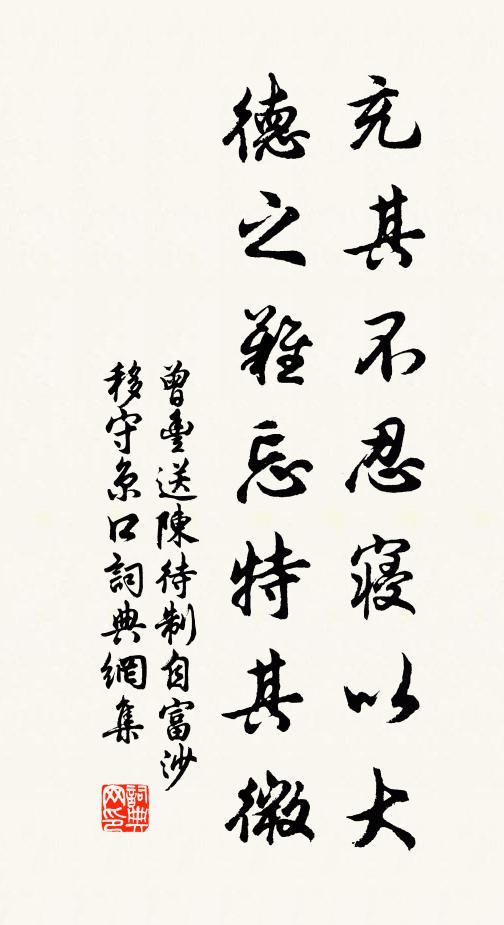 充其不忍寝以大
德之難忘特其微
曾豊送陳待制自富沙
移守京口詞典網集
詞典网印